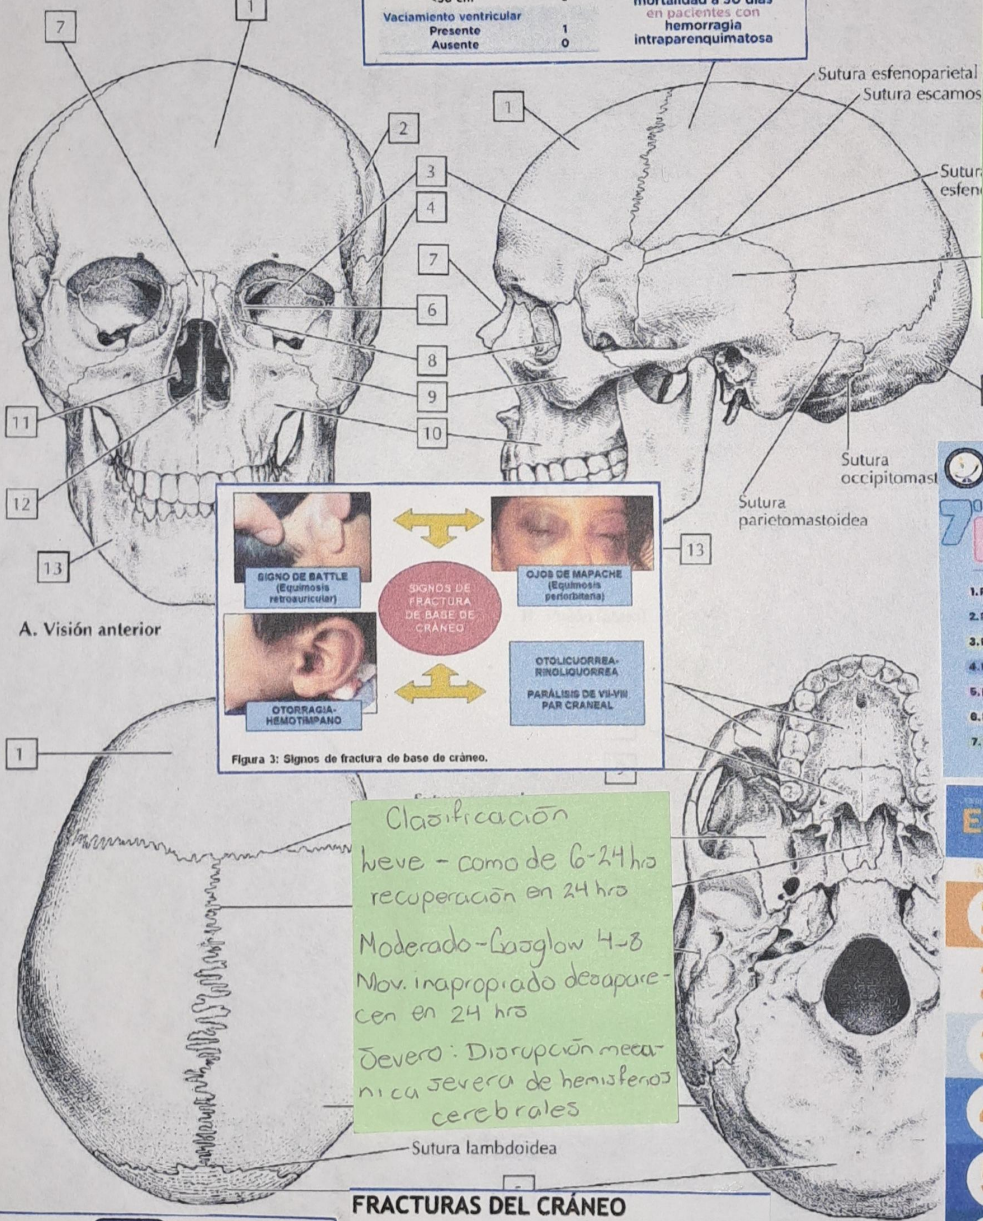 7
1
Vaciamiento ventricular
Presente 1
Ausente 0
mortalidad a 30 días
en pacientes con
hemorragia
intraparenquimatosa
Sutura esfenoparietal
Sutura escamos
1
2
3
4
7
6
8
9
10
11
12
13
Sutura
occipitomast
Sutura
parietomastoidea
13
A. Visión anterior
SIGNO DE BATTLE
(Equimosis
retroauricular)
SIGNOS DE
FRACTURA
DE BASE DE
CRÁNEO
OJOS DE MAPACHE
(Equimosis
periorbitaria)
OTORRAGIA-
HEMOTIMPANO
OTOLICUORREA-
RINOLIQUORREA
PARÁLISIS DE VII-VIII
PAR CRANEAL
Figura 3: Signos de fractura de base de cráneo.
7º
1.
2.
3.
4.
5.
6.
7.
1
Clasificación
Leve - como de 6-24 hrs
recuperación en 24 hrs
Moderado - Gasglow 4-8
Mov. inapropiado desapare-
cen en 24 hrs
Severo: Disrupción meca-
nica severa de hemisferios
cerebrales
Sutura lambdoidea
FRACTURAS DEL CRÁNEO
E